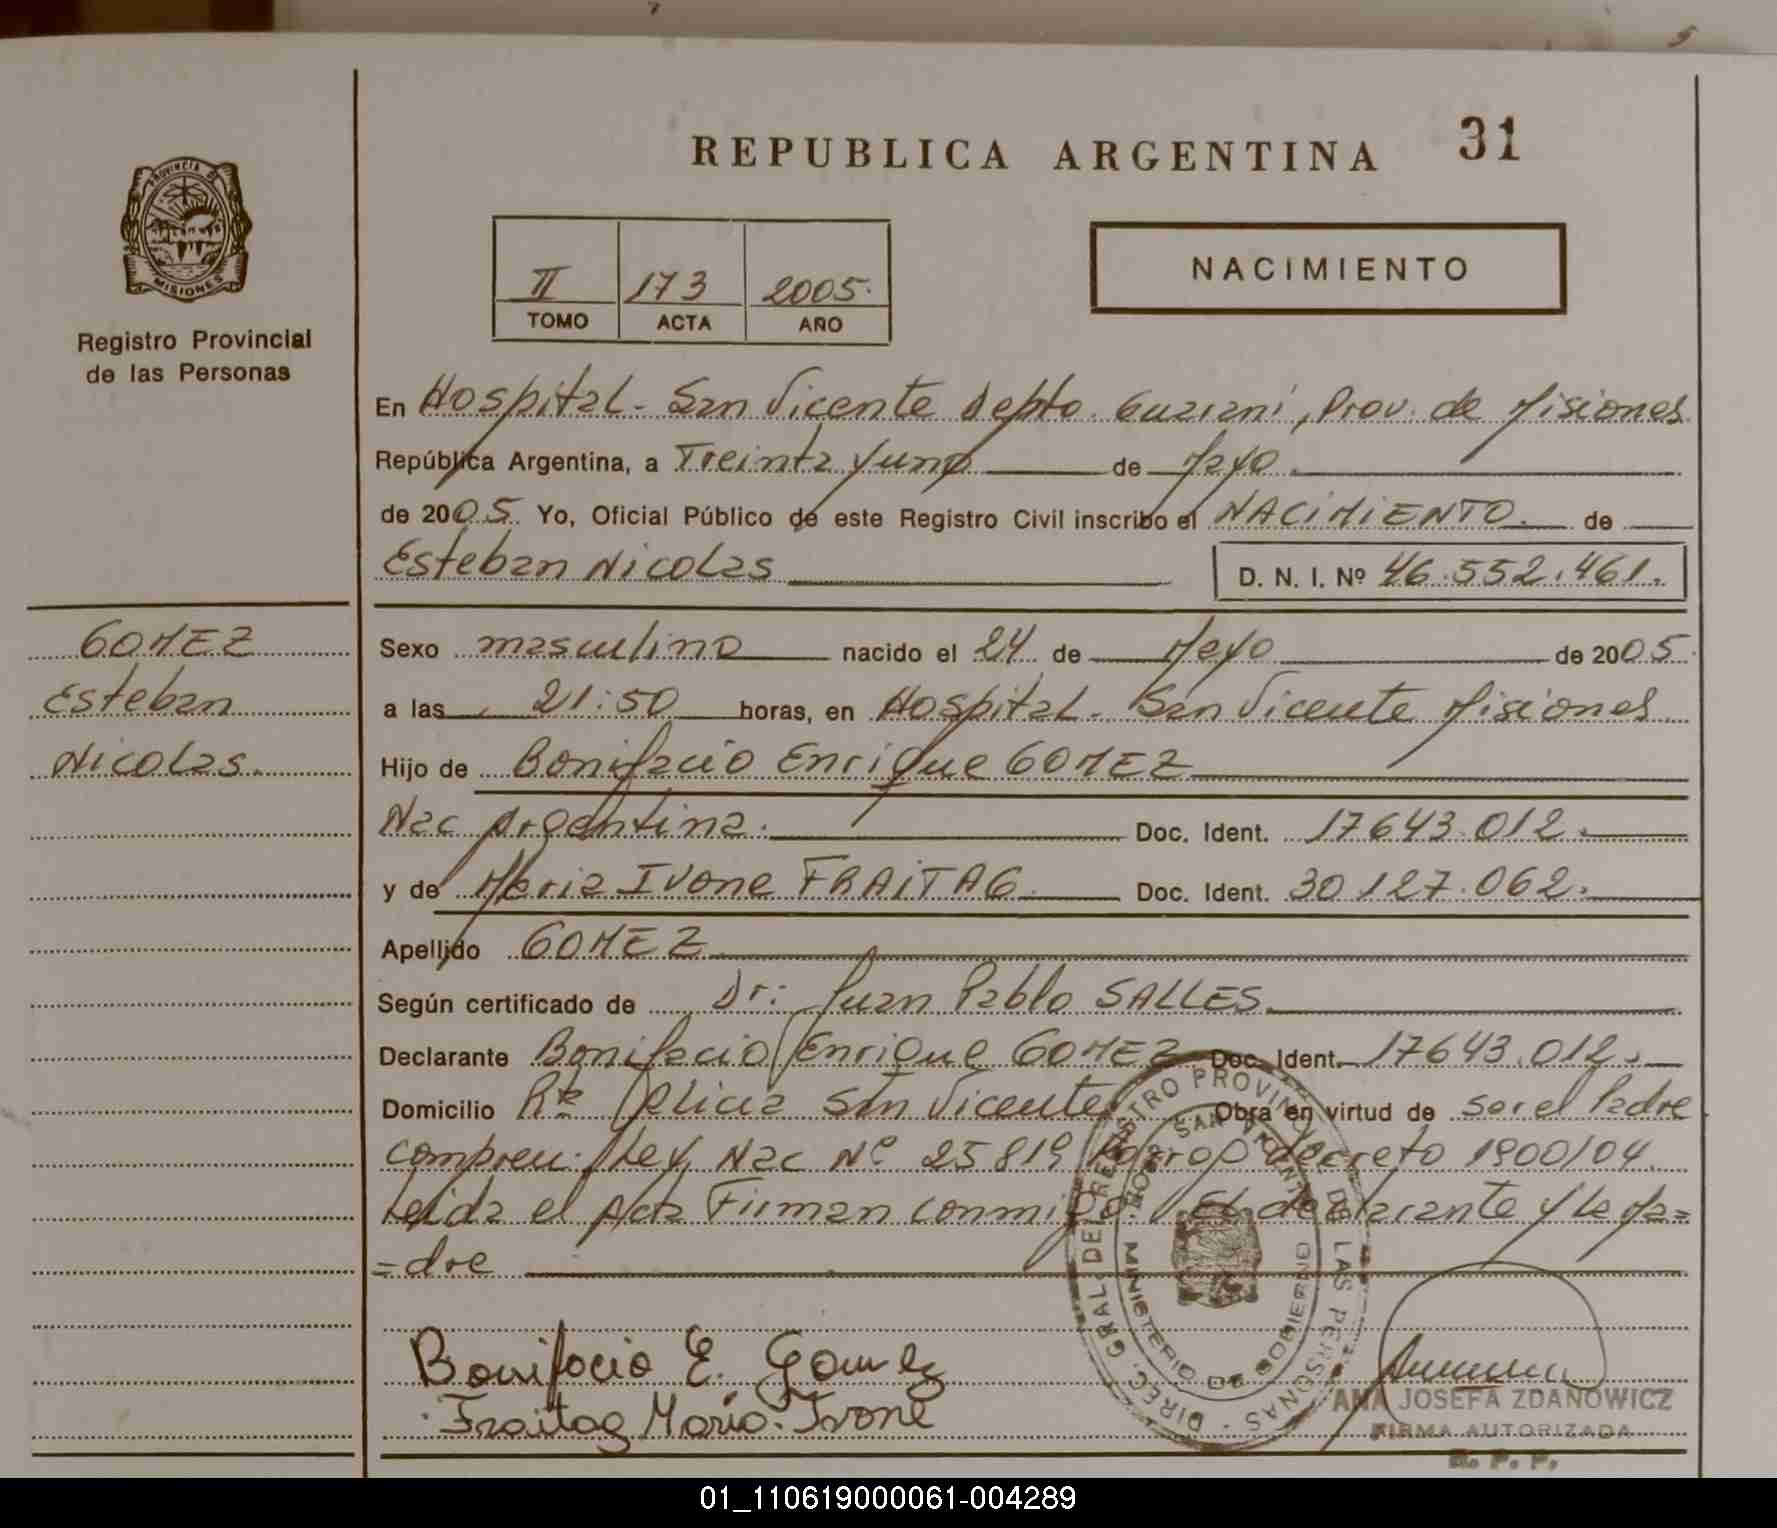 REPUBLICA ARGENTINA 31
PROVINCIA DE
MISIONES
Registro Provincial
de las Personas
II 173 2005.
TOMO ACTA AÑO
NACIMIENTO
En Hospital - San Vicente Depto. Guarani, Prov. de Misiones
República Argentina, a Treinta y uno de Mayo
de 2005. Yo, Oficial Público de este Registro Civil inscribo el NACIMIENTO. de
Esteban Nicolas D. N. I. Nº 46.552.461.
GOMEZ
Esteban
Nicolas.
Sexo masculino nacido el 24 de Mayo de 2005.
a las 21:50 horas, en Hospital - San Vicente Misiones
Hijo de Bonifacio Enrique GOMEZ
Nac Argentina. Doc. Ident. 17643.012.
y de Maria Ivone FRAITAG. Doc. Ident. 30127.062.
Apellido GOMEZ
Según certificado de Dr: Juan Pablo SALLES
Declarante Bonifacio Enrique GOMEZ Doc. Ident. 17643.012.
Domicilio Delicia San Vicente Obra en virtud de ser el Padre
compren. Ley Nac Nº 25819 decreto 1900/04.
Leida el Acta Firman conmigo. El declarante y la Ma=
=dre
Bonifacio E. Gomez
Fraitag Maria Ivone
DIREC. GRAL. DEL REGISTRO PROVINCIAL DE LAS PERSONAS
SAN VICENTE
MINISTERIO DE GOBIERNO
ANA JOSEFA ZDANOWICZ
FIRMA AUTORIZADA
R. P. P.
01_110619000061-004289